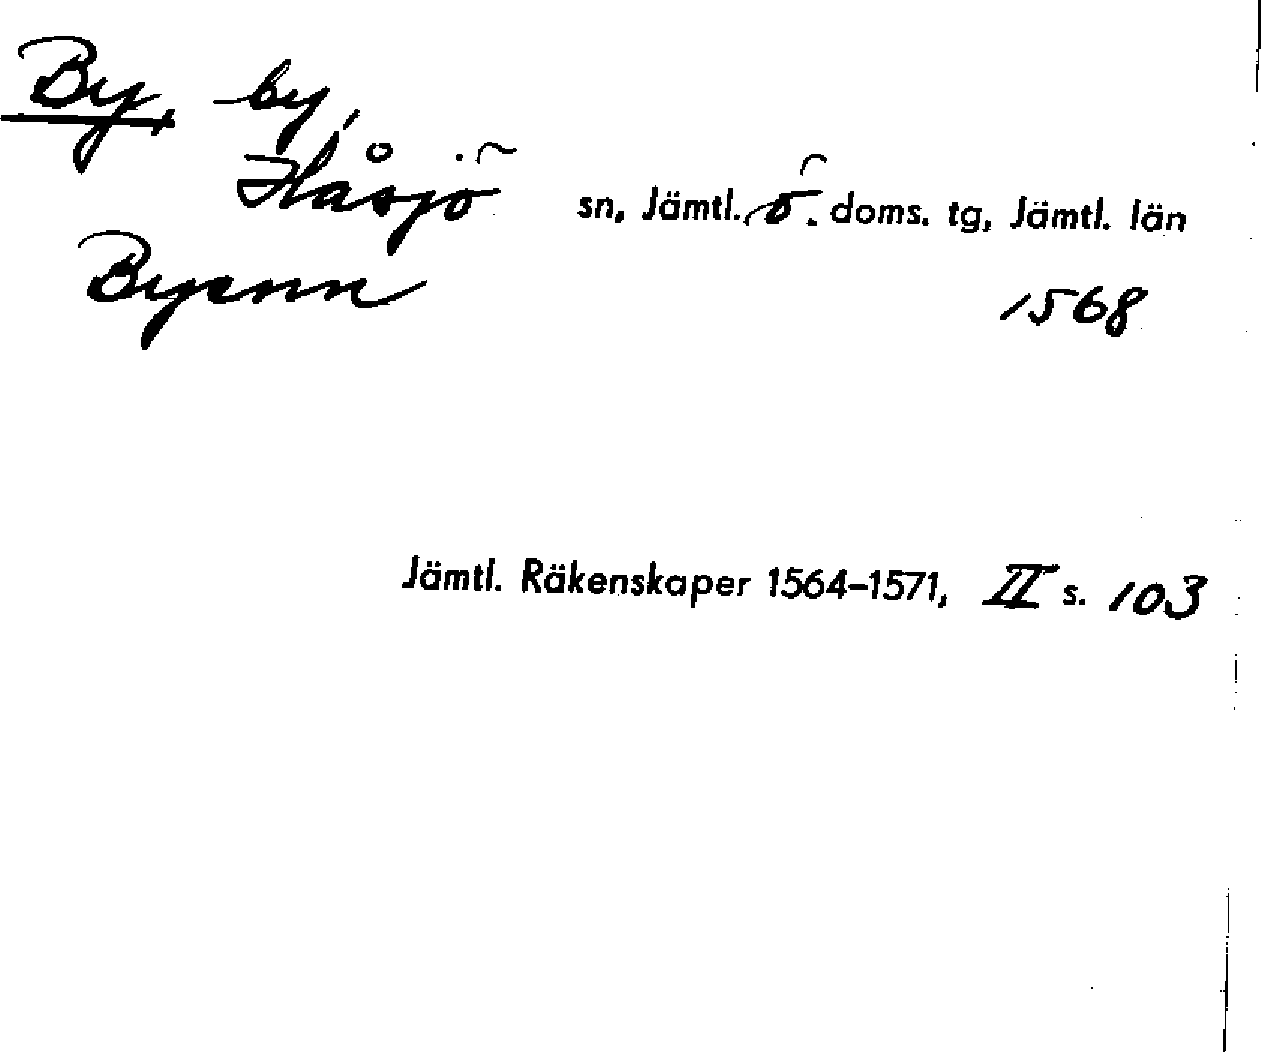 By, by,
Håsjö sn, Jämtl. ö. doms. tg, Jämtl. län
Byenn 1568
Jämtl. Räkenskaper 1564–1571, II s. 103